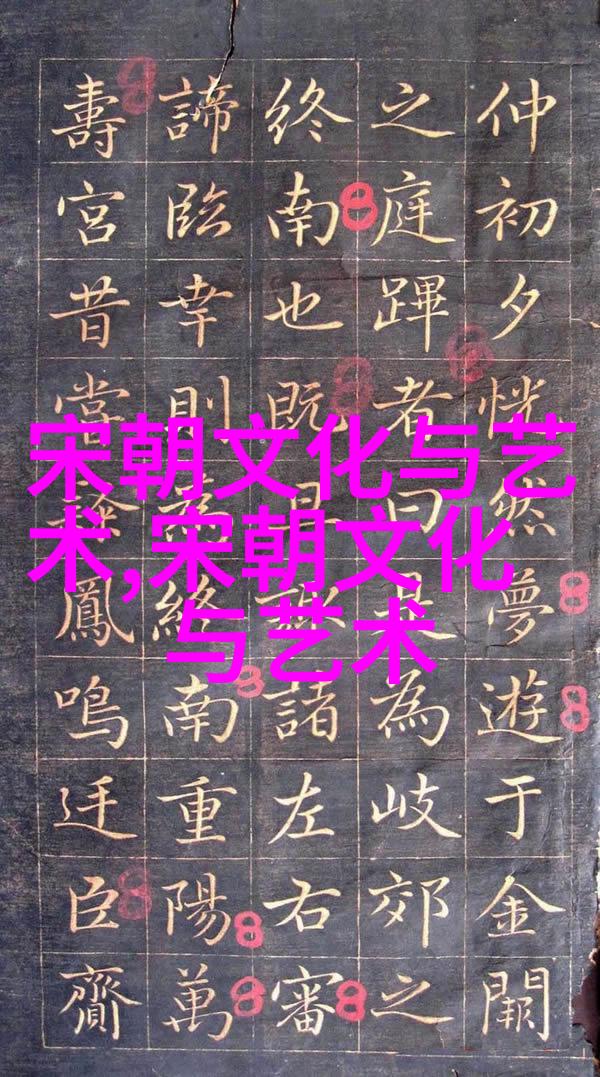 宋朝文化与艺
术,宋朝文化
与艺术
仲初夕恍然夢遊于金闕
之庭蹕者曰是為岐郊之
終南也既諸左右審
諦臨幸則終南重陽萬
壽宮昔嘗鳳鳴迋臣齎